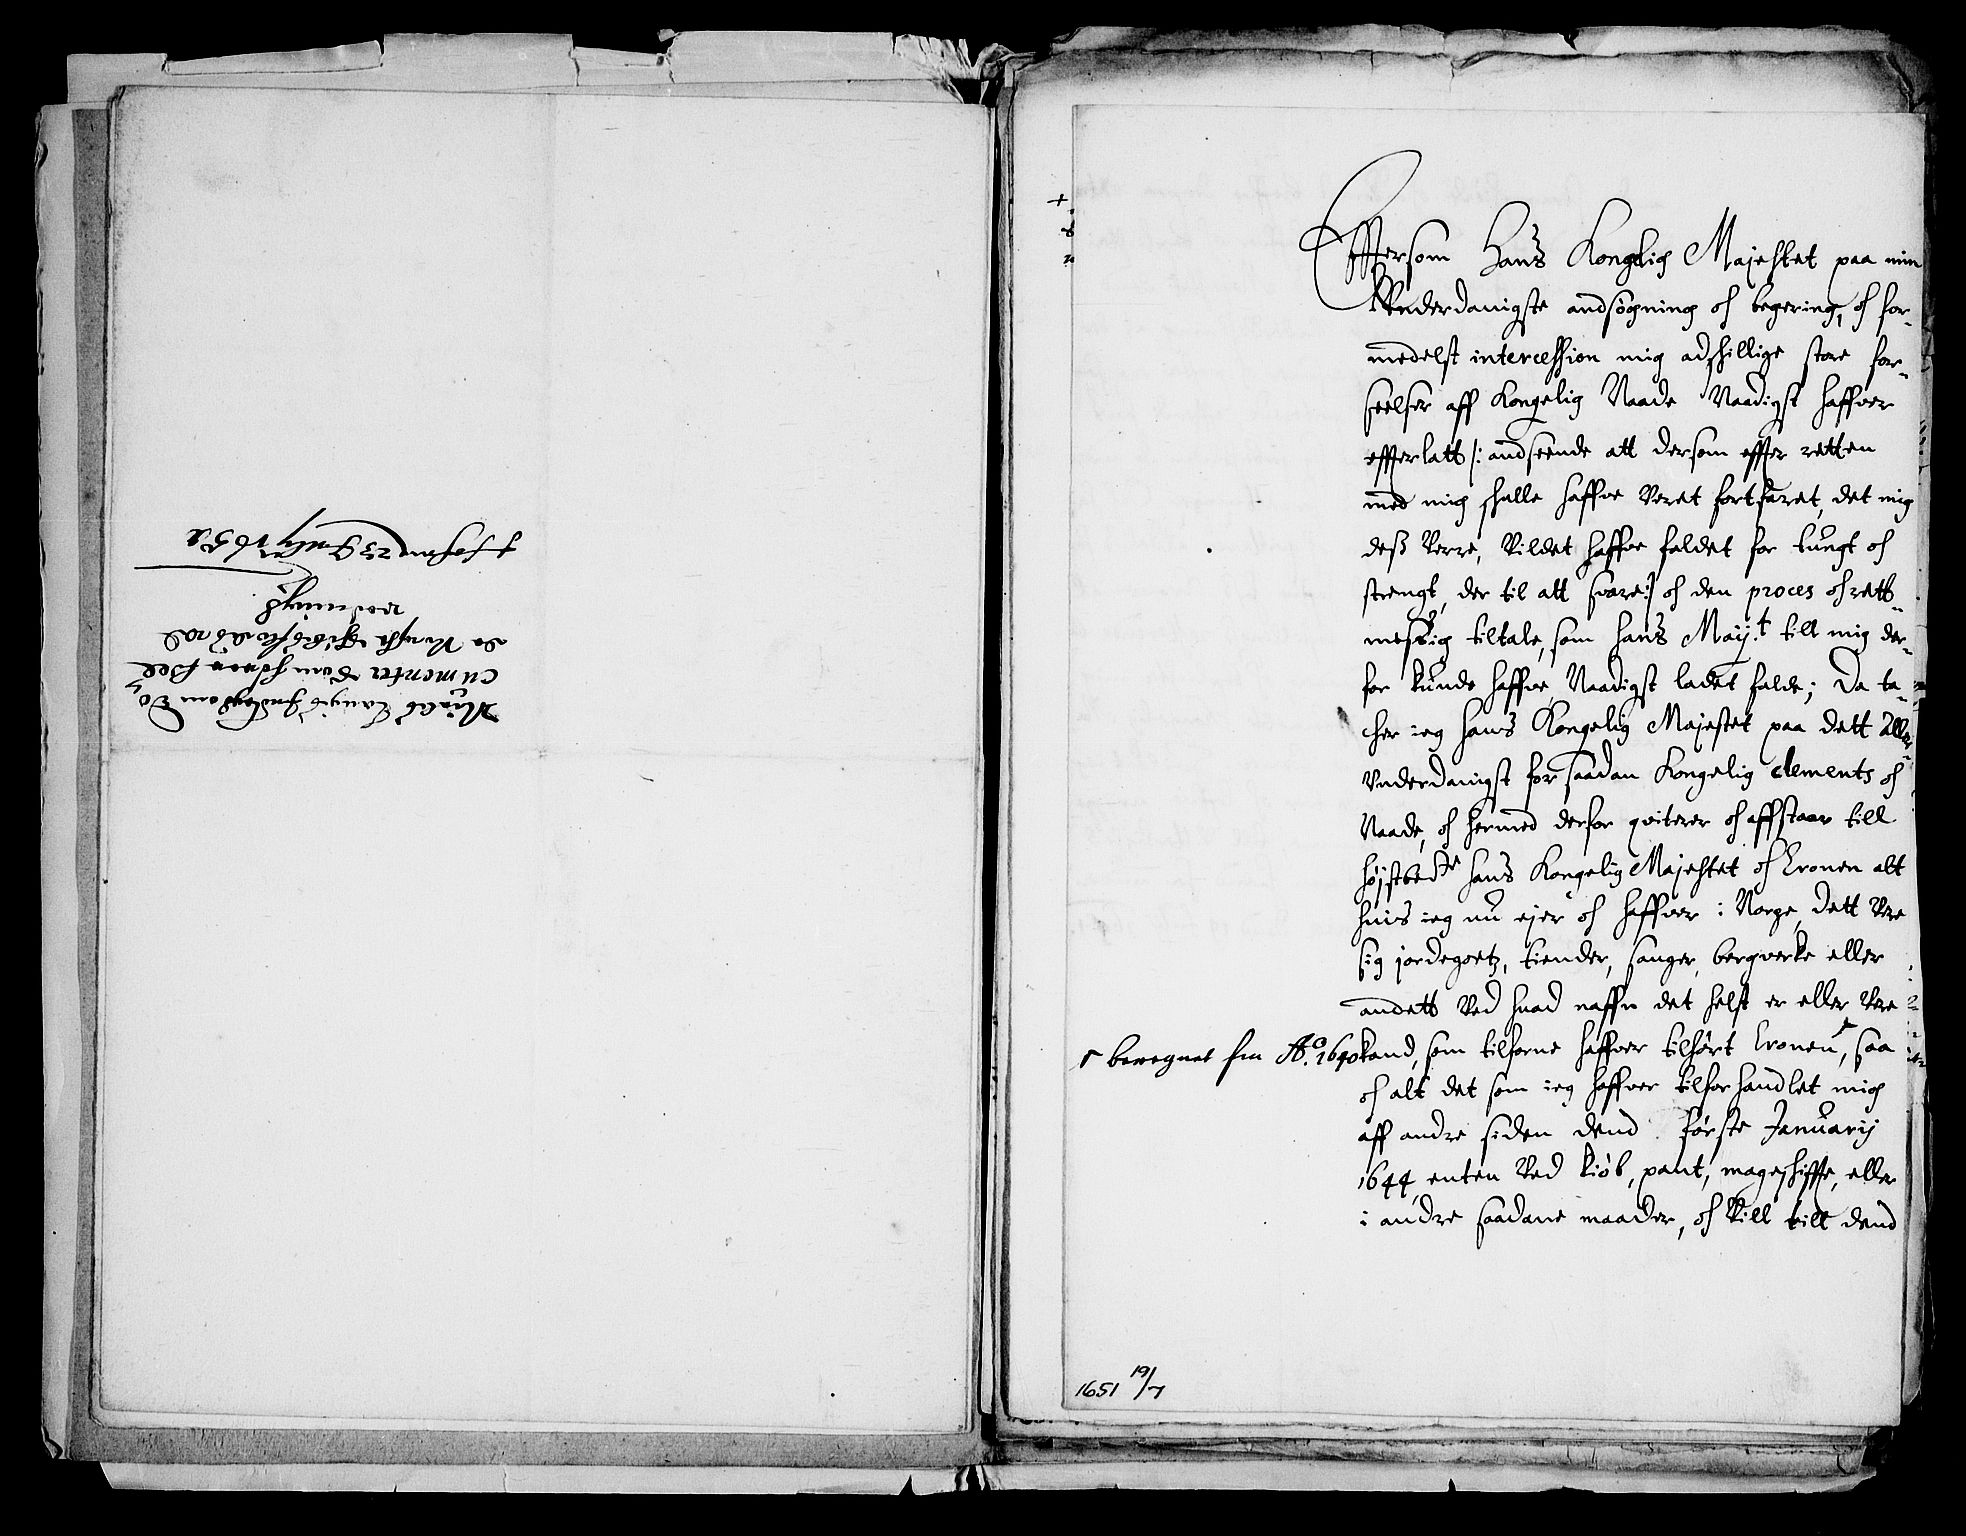 Niels Langis Indlagdom Do,
cumenter
da
$ 23 July 1652
Efftersom Hans Kongelig Majestet paa min
Vnderdanigste andsøgning oc begering, oc for-
medelst intercession mig adskillige store for-
seelser aff Kongelig Naade Naadigst haffver
effterlatt /: andseende att dersom effter retten
med mig skulle haffve veret fortfaret, det mig
dess verre, vildet haffve faldet for tungt oc
strengt, der til att svare:/ oc den proces oc rett-
messig tiltale, som hans Mayt. till mig der-
for kunde haffve, Naadigst ladet falde; Da ta-
cher ieg hans Kongelig Majestet paa dett aller-
vnderdanigst for saadan Kongelig clements oc
Naade, oc hermed derfor qviterer oc affstaar till
højstbedte hans Kongelig Majestet oc Cronen alt
huis ieg nu ejer oc haffver i Norge, dett vere
sig jordegoetz, tiender, sauger, bergverke eller
andett ved huad naffn det helst er eller vere
kand, som tilforne haffver tilhørt Cronen, saa
beregnet fra Ao. 1640
oc alt det som ieg haffver tilforhandlet mig
aff andre siden dend første Januarij
1644, enten ved kiøb, pant, mageskiffte, eller
i andre saadane maader, oc vill till dend
1651 19/7